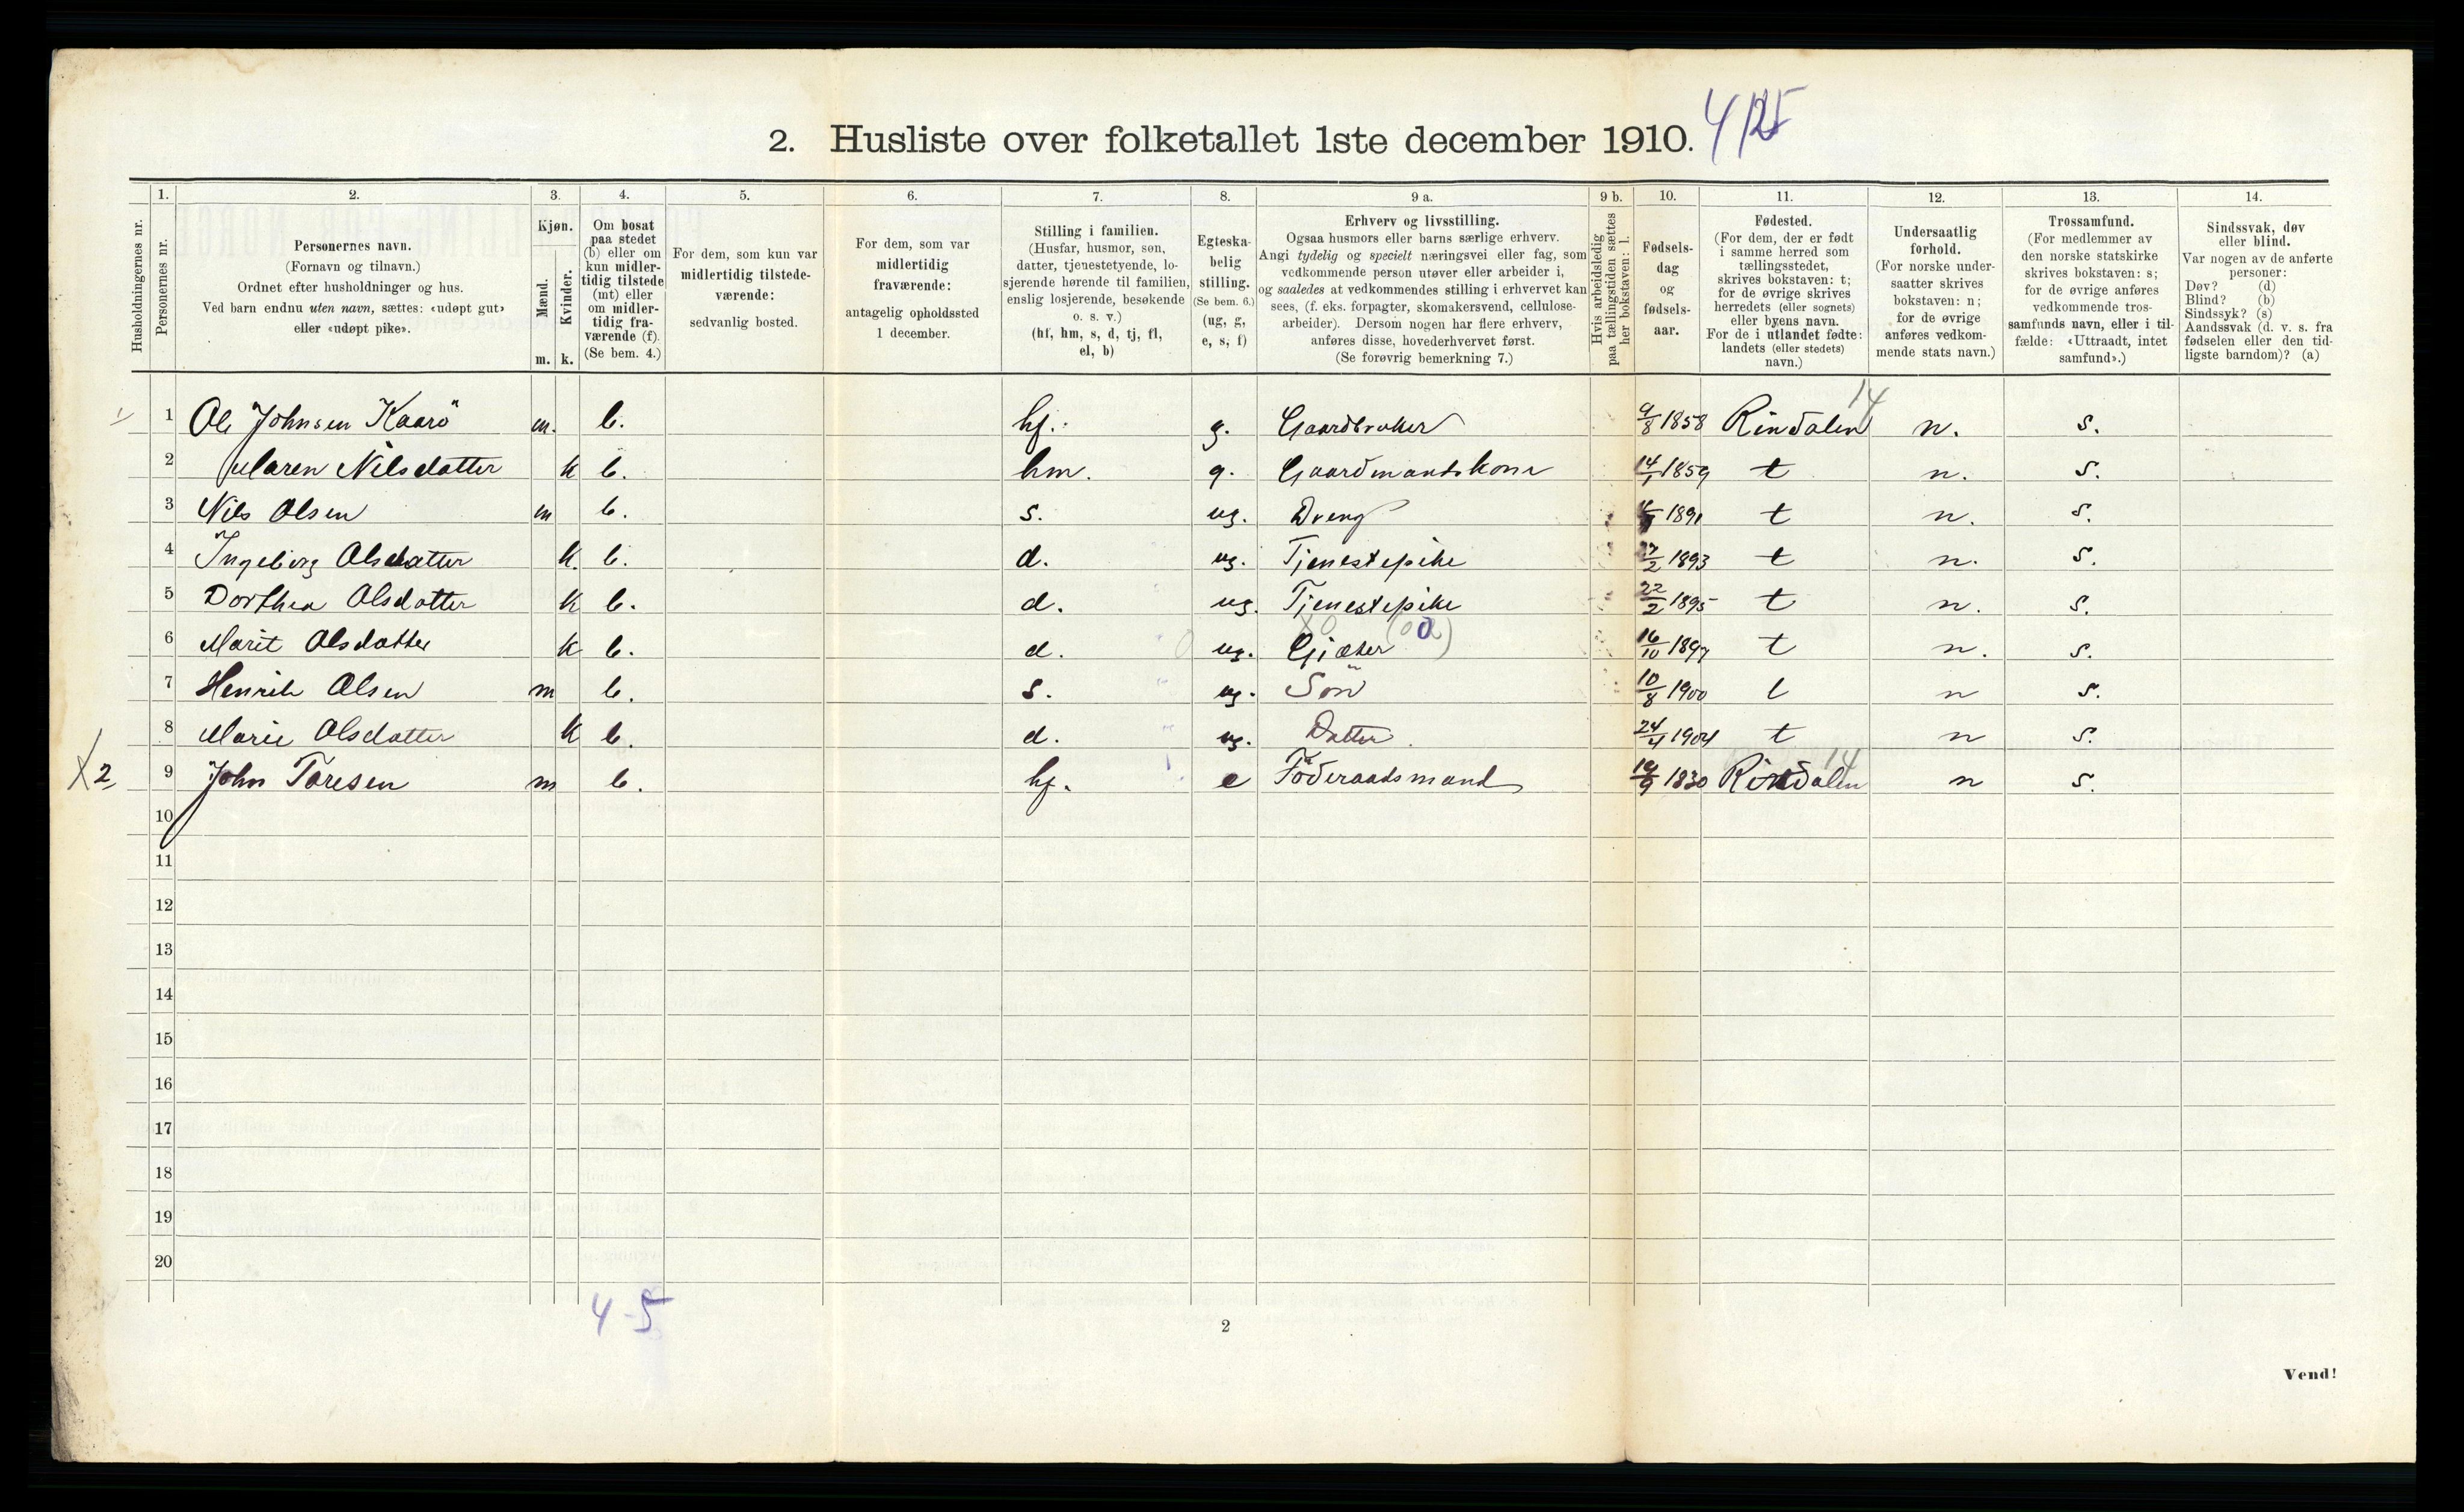 2. Husliste over folketallet 1ste december 1910.
1. 2. 3. 4. 5. 6. 7. 8. 9 a. 9 b. 10. 11. 12. 13. 14.
Husholdningernes nr.
Personernes nr.
Personernes navn.
(Fornavn og tilnavn.)
Ordnet efter husholdninger og hus.
Ved barn endnu uten navn, sættes: «udøpt gut»
eller «udøpt pike».
Kjøn.
Mænd.
Kvinder.
m. k.
Om bosat
paa stedet
(b) eller om
kun midler-
tidig tilstede
(mt) eller
om midler-
tidig fra-
værende (f).
(Se bem. 4.)
For dem, som kun var
midlertidig tilstede-
værende:
sedvanlig bosted.
For dem, som var
midlertidig
fraværende:
antagelig opholdssted
1 december.
Stilling i familien.
(Husfar, husmor, søn,
datter, tjenestetyende, lo-
sjerende hørende til familien,
enslig losjerende, besøkende
o. s. v.)
(hf, hm, s, d, tj, fl,
el, b)
Egteska-
belig
stilling.
(Se bem. 6.)
(ug, g,
e, s, f)
Erhverv og livsstilling.
Ogsaa husmors eller barns særlige erhverv.
Angi tydelig og specielt næringsvei eller fag, som
vedkommende person utøver eller arbeider i,
og saaledes at vedkommendes stilling i erhvervet kan
sees, (f. eks. forpagter, skomakersvend, cellulose-
arbeider). Dersom nogen har flere erhverv,
anføres disse, hovederhvervet først.
(Se forøvrig bemerkning 7.)
Hvis arbeidsledig
paa tællingstiden sættes
her bokstaven: l.
Fødsels-
dag
og
fødsels-
aar.
Fødested.
(For dem, der er født
i samme herred som
tællingsstedet,
skrives bokstaven: t;
for de øvrige skrives
herredets (eller sognets)
eller byens navn.
For de i utlandet fødte:
landets (eller stedets)
navn.)
Undersaatlig
forhold.
(For norske under-
saatter skrives
bokstaven: n;
for de øvrige
anføres vedkom-
mende stats navn.)
Trossamfund.
(For medlemmer av
den norske statskirke
skrives bokstaven: s;
for de øvrige anføres
vedkommende tros-
samfunds navn, eller i til-
fælde: «Uttraadt, intet
samfund».)
Sindssvak, døv
eller blind.
Var nogen av de anførte
personer:
Døv? (d)
Blind? (b)
Sindssyk? (s)
Aandssvak (d. v. s. fra
fødselen eller den tid-
ligste barndom)? (a)
14
1 Ole Johnsen Kaarö m. b. hf. g. Gaardbruker 9/8 1858 Rindalen n. s.
2 Maren Nilsdatter k b. hm. g. Gaardmandskone 14/1 1859 t n. s.
3 Nils Olsen m b. s. ug. Dreng 1891 t n. s.
4 Ingeborg Olsdatter k. b. d. ug. Tjenestepike 1893 t n. s.
5 Dorthea Olsdatter k b. d. ug. Tjenestepike 22/2 1895 t n. s.
6 Marit Olsdatter k b. d. ug. Gjæter 16/10 1897 t n. s.
7 Henrik Olsen m b. s. ug. Sön 10/8 1900 t n s.
8 Marie Olsdatter k b. d. ug. Datter. 24/4 1904 t n s.
14
X 2 9 John Toresen m b. hf. e Föderaadsmand 1830 Rindalen n s.
10
11
12
13
14
15
16
17
18
19
20
4-5
2
Vend!